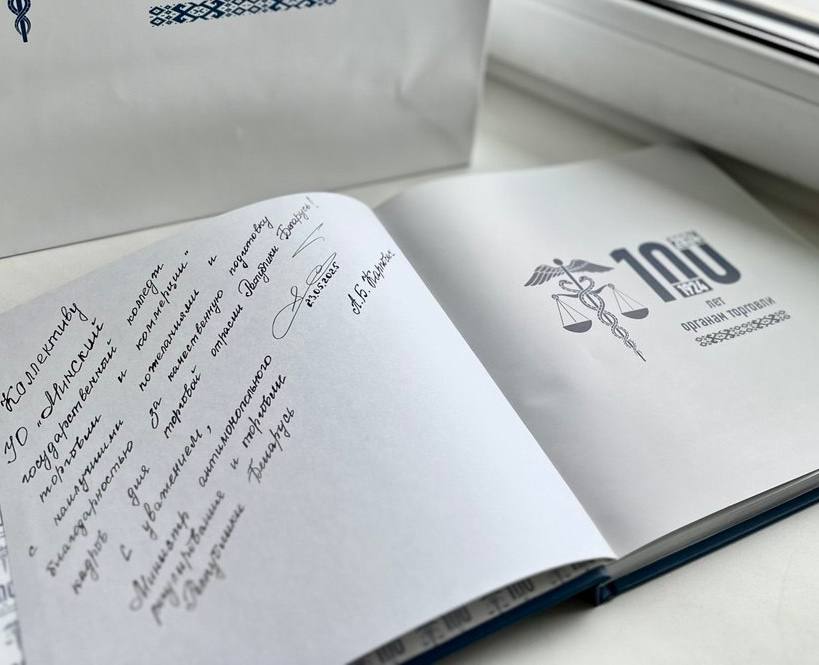 Коллективу
УО „Минский
государственный колледж
торговли и коммерции"
с наилучшими пожеланиями и
благодарностью за качественную подготовку
кадров для торговой отрасли Республики Беларусь!
С уважением,
Министр антимонопольного
регулирования и торговли
Республики Беларусь
23.05.2025
А.Б. Карпович
100
2024
1924
лет
органам торговли